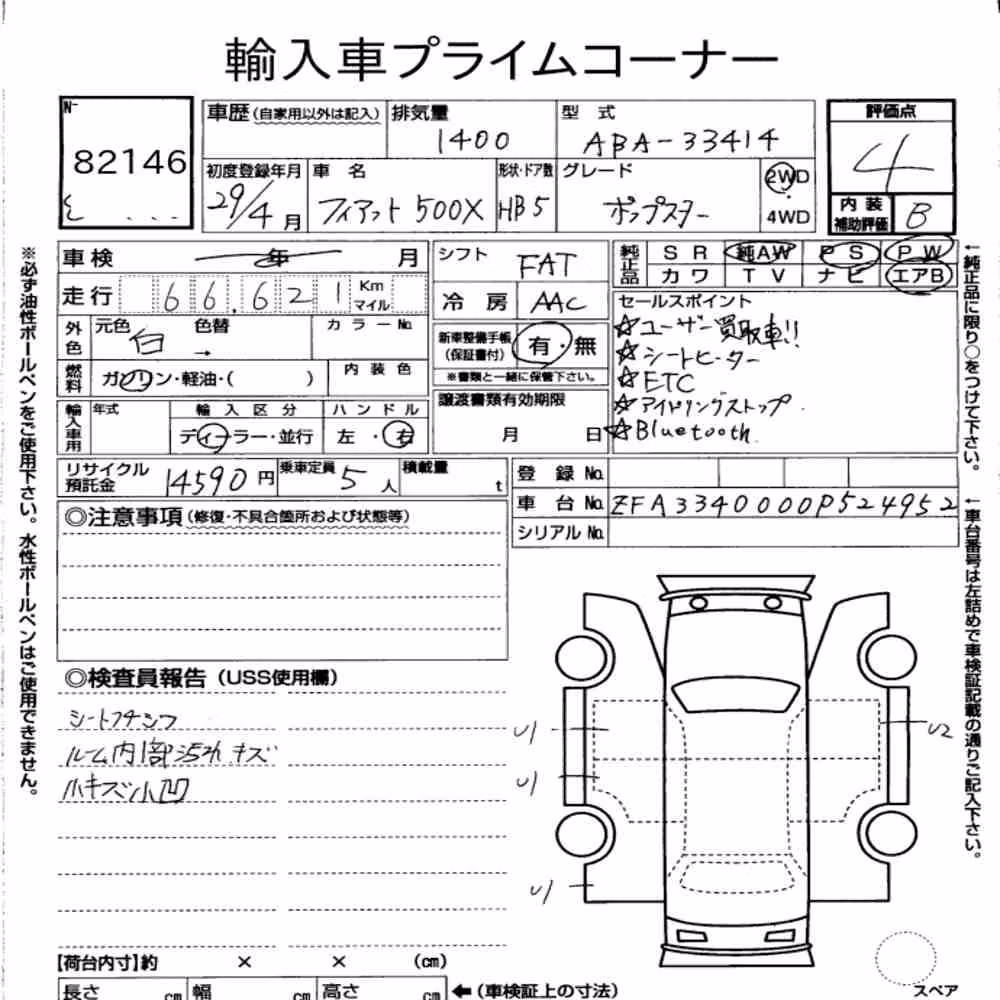 輸入車プライムコーナー
N- 82146
車歴(自家用以外は記入) 排気量 1400 型式 ABA-33414
評価点 4
初度登録年月 29/4月 車名 フィアット 500X 形状・ドア数 HB5 グレード ポップスター 2WD 4WD
内装補助評価 B
車検 年 月
走行 66,621 Km マイル
シフト FAT
冷房 AAC
純正品 SR 純AW PS PW
カワ TV ナビ エアB
外色 元色 白 色替 → カラーNo.
燃料 ガソリン・軽油・( ) 内装色
新車整備手帳(保証書付) 有・無
※書類と一緒に保管下さい。
セールスポイント
☆ユーザー買取車!!
☆シートヒーター
☆ETC
☆アイドリングストップ
☆Bluetooth.
輸入車用 年式 輸入区分 ディーラー・並行 ハンドル 左・右
譲渡書類有効期限 月 日
リサイクル預託金 14590円 乗車定員 5人 積載量 t
登録No.
車台No. ZFA3340000P524952
シリアルNo.
◎注意事項(修復・不具合箇所および状態等)
◎検査員報告(USS使用欄)
ルーム内部汚れ キズ
小キズ小凹
U1
U1
U1
U2
【荷台内寸】約 × × (cm)
長さ cm 幅 cm 高さ cm ←(車検証上の寸法)
スペア
※必ず油性ボールペンをご使用下さい。水性ボールペンはご使用できません。
←純正品に限り○をつけて下さい。
←車台番号は左詰めで車検証記載の通りご記入下さい。